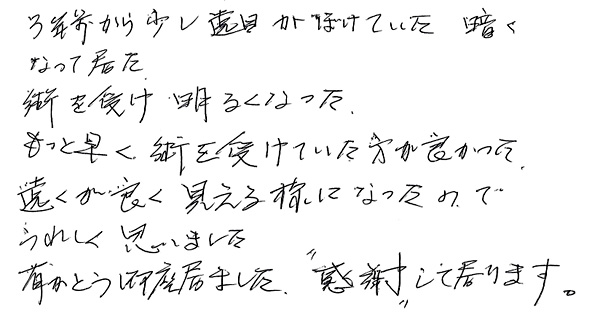 3年前から少し遠目がぼけていた 暗く
なって居た.
術を受け 明るくなった.
もっと早く 術を受けていた方が良かった.
遠くが良く見える様になったので
うれしく思いました
有がとう御座居ました. "感謝"して居ります。